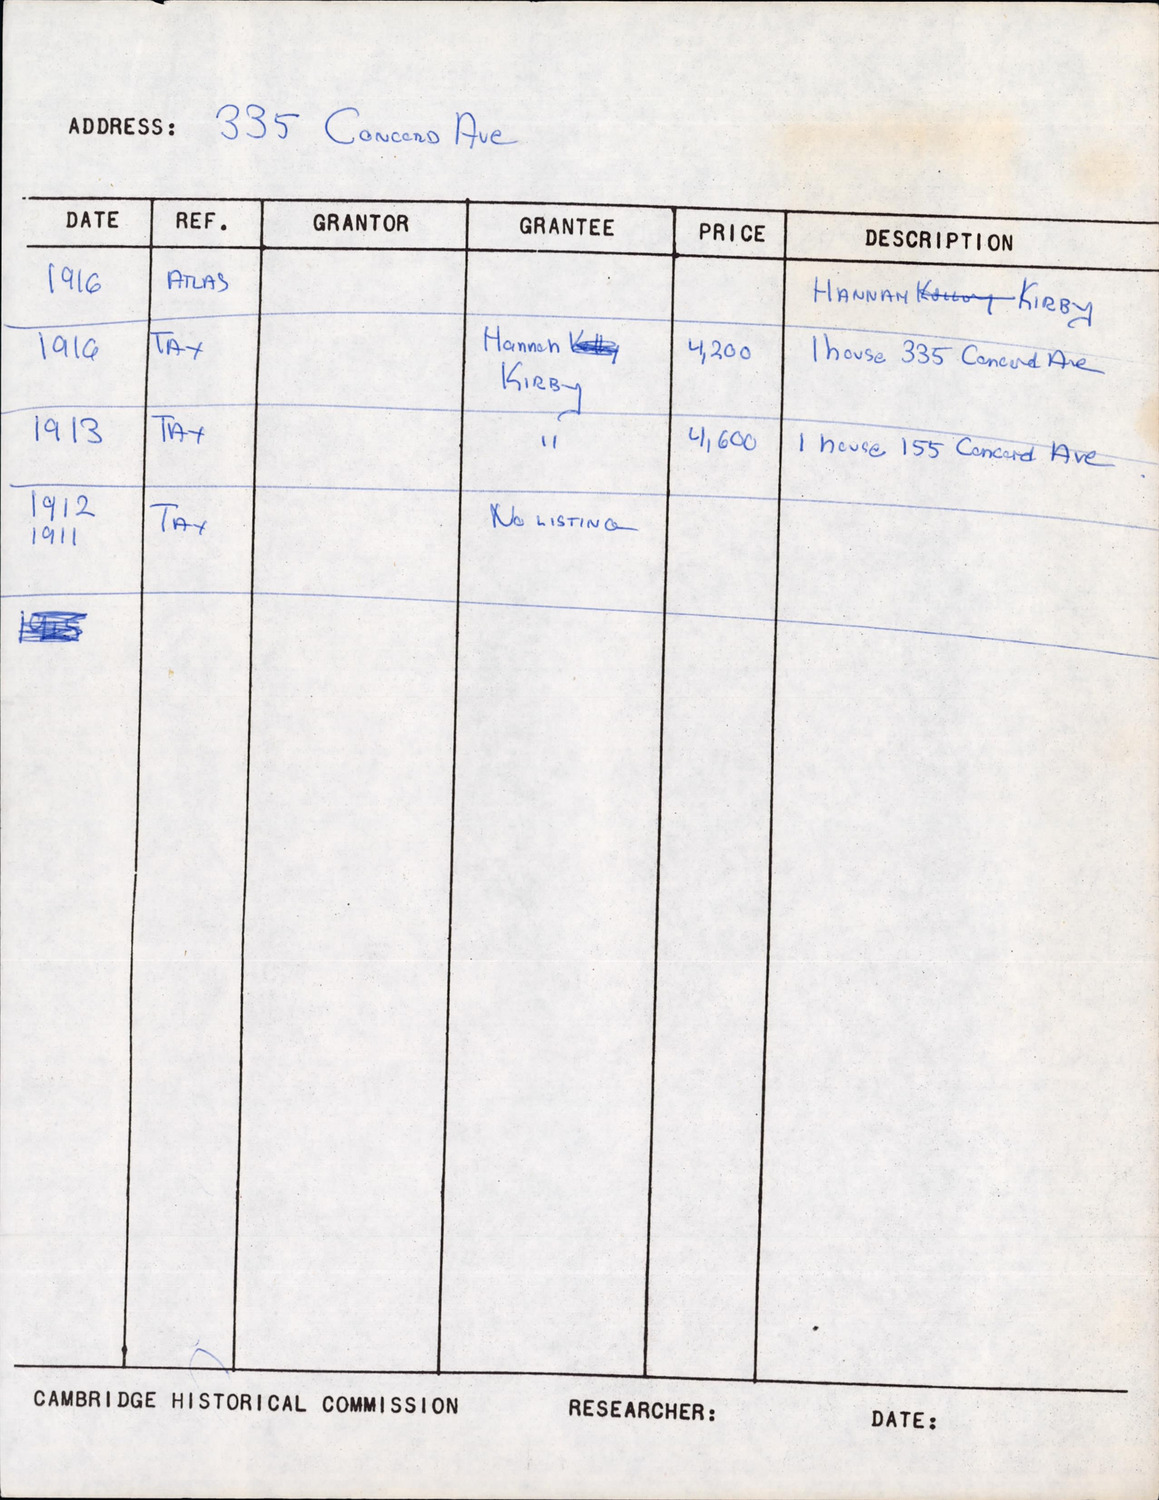 ADDRESS: 335 Concord Ave
DATE REF. GRANTOR GRANTEE PRICE DESCRIPTION
1916 ATLAS HANNAH KIRBY
1916 TAX Hannah 4,200 1 house 335 Concord Ave
KIRBY
1913 TAX " 4,600 1 house 155 Concord Ave
1912 TAX No LISTING
1911
CAMBRIDGE HISTORICAL COMMISSION RESEARCHER: DATE: